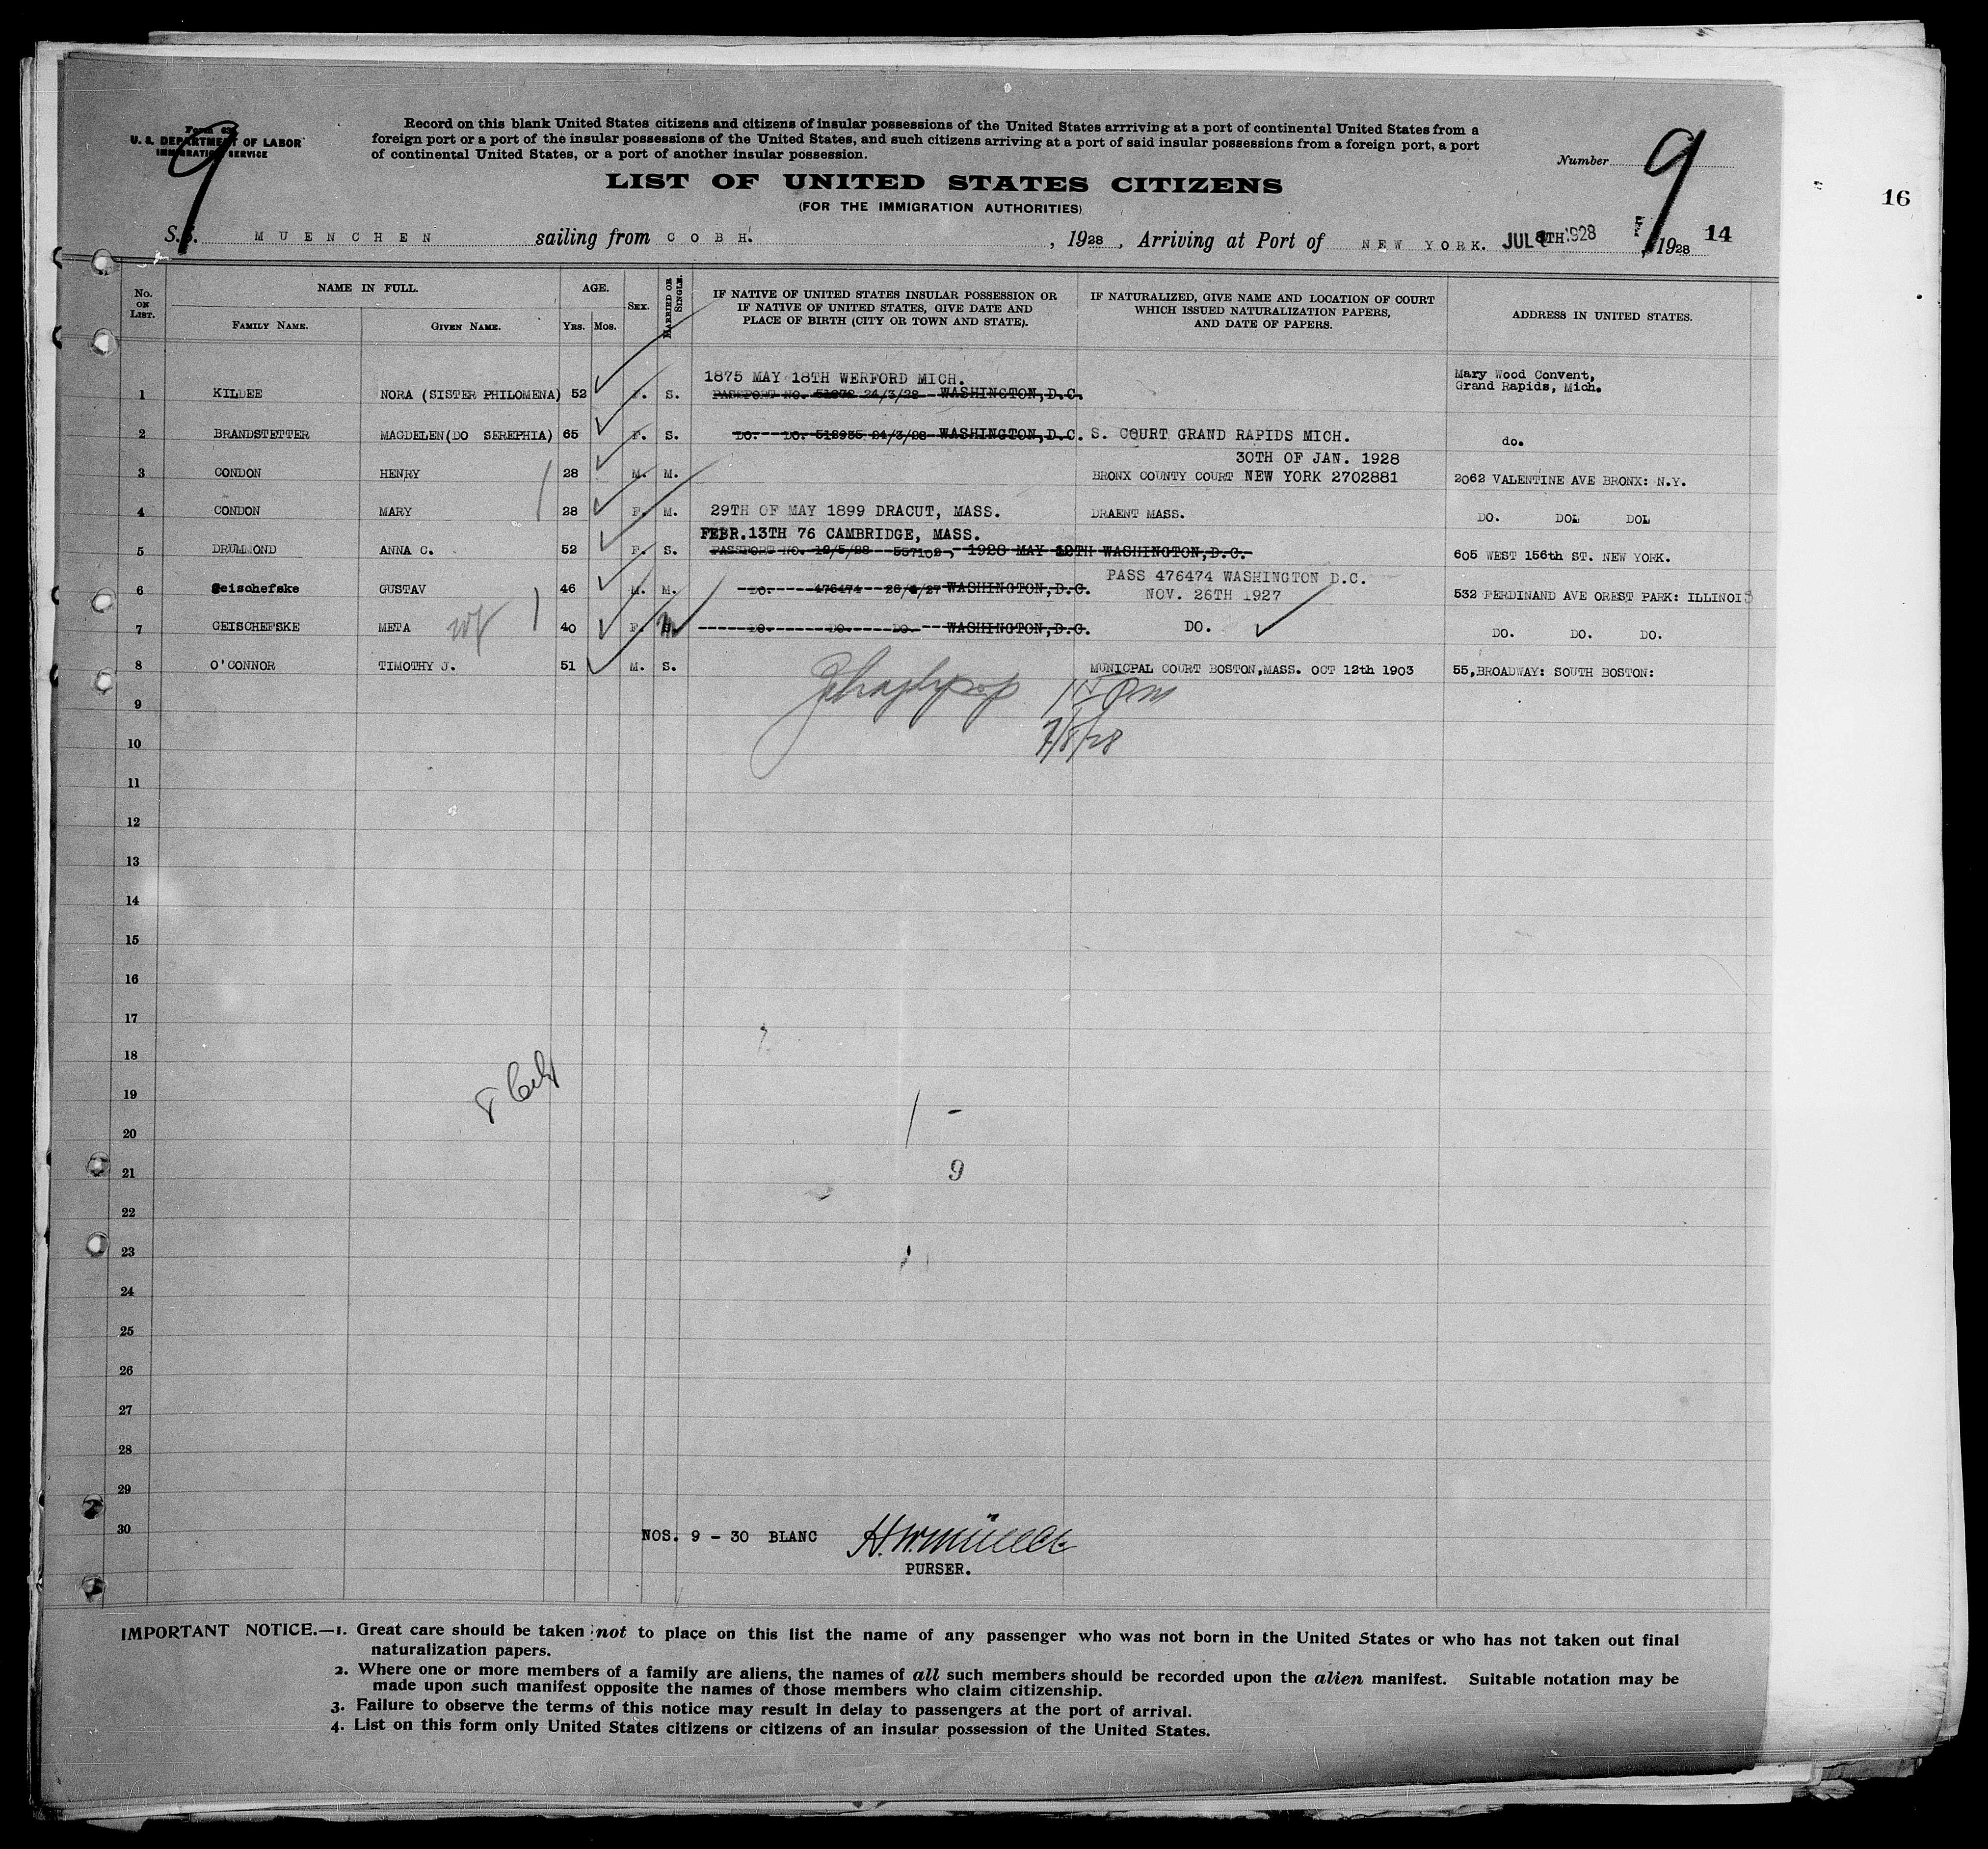 Form 63
U. S. DEPARTMENT OF LABOR
IMMIGRATION SERVICE
9
Record on this blank United States citizens and citizens of insular possessions of the United States arrriving at a port of continental United States from a
foreign port or a port of the insular possessions of the United States, and such citizens arriving at a port of said insular possessions from a foreign port, a port
of continental United States, or a port of another insular possession.
Number 9
LIST OF UNITED STATES CITIZENS
(FOR THE IMMIGRATION AUTHORITIES)
16
S.S. MUENCHEN sailing from COBH. , 1928 , Arriving at Port of NEW YORK. JUL 8TH 1928 , 1928 14
No. ON LIST.
NAME IN FULL.
FAMILY NAME. GIVEN NAME.
AGE.
YRS. MOS.
SEX.
MARRIED OR SINGLE.
IF NATIVE OF UNITED STATES INSULAR POSSESSION OR
IF NATIVE OF UNITED STATES, GIVE DATE AND
PLACE OF BIRTH (CITY OR TOWN AND STATE).
IF NATURALIZED, GIVE NAME AND LOCATION OF COURT
WHICH ISSUED NATURALIZATION PAPERS,
AND DATE OF PAPERS.
ADDRESS IN UNITED STATES.
1875 MAY 18TH WERFORD MICH. Mary Wood Convent,
1 KILDEE NORA (SISTER PHILOMENA) 52 F. S. PASSPORT NO. 24/3/28 WASHINGTON,D.C. Grand Rapids, Mich.
2 BRANDSTETTER MAGDELEN(DO SEREPHIA) 65 F. S. DO. DO. 512935 24/3/28 WASHINGTON,D.C. S. COURT GRAND RAPIDS MICH. do.
30TH OF JAN. 1928
3 CONDON HENRY 28 M. M. BRONX COUNTY COURT NEW YORK 2702881 2062 VALENTINE AVE BRONX: N.Y.
4 CONDON MARY 28 F. M. 29TH OF MAY 1899 DRACUT, MASS. DRAENT MASS. DO. DO. DO.
FEBR.13TH 76 CAMBRIDGE, MASS.
5 DRUMMOND ANNA C. 52 F. S. PASSPORT NO. 12/5/28 557102, 1928 MAY 12TH WASHINGTON,D.C. 605 WEST 156th ST. NEW YORK.
PASS 476474 WASHINGTON D.C.
6 Geischefske GUSTAV 46 M. M. DO. 476474 WASHINGTON,D.C. NOV. 26TH 1927 532 FERDINAND AVE OREST PARK: ILLINOIS
7 GEISCHEFSKE META wf 40 F. M DO. DO. DO. WASHINGTON,D.C. DO. DO. DO. DO.
8 O'CONNOR TIMOTHY J. 51 M. S. MUNICPAL COURT BOSTON,MASS. OCT 12th 1903 55,BROADWAY: SOUTH BOSTON:
9
7/8/28
10
11
12
13
14
15
16
17
18
19
20
21 9
22
23
24
25
26
27
28
29
30
NOS. 9 - 30 BLANC H.W.Müller
PURSER.
IMPORTANT NOTICE.—1. Great care should be taken not to place on this list the name of any passenger who was not born in the United States or who has not taken out final
naturalization papers.
2. Where one or more members of a family are aliens, the names of all such members should be recorded upon the alien manifest. Suitable notation may be
made upon such manifest opposite the names of those members who claim citizenship.
3. Failure to observe the terms of this notice may result in delay to passengers at the port of arrival.
4. List on this form only United States citizens or citizens of an insular possession of the United States.